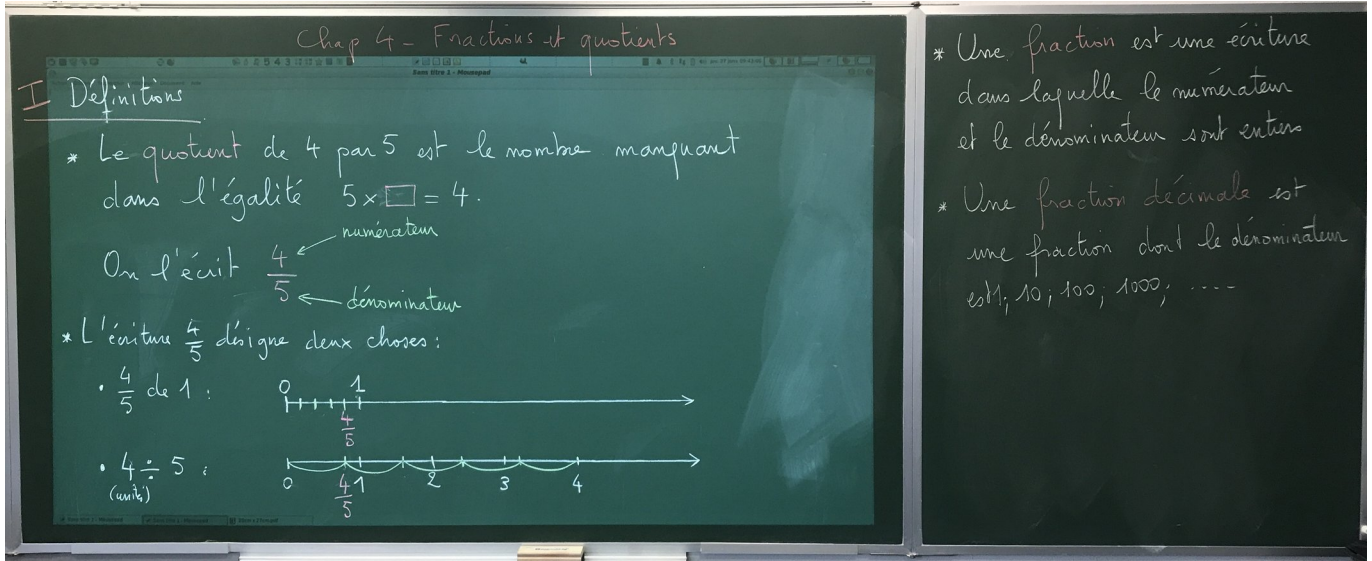 Chap 4 - Fractions et quotients
Sans titre 1 - Mousepad
I Définitions
* Le quotient de 4 par 5 est le nombre manquant
dans l'égalité 5 × □ = 4.
numérateur
On l'écrit 4/5
dénominateur
* L'écriture 4/5 désigne deux choses :
• 4/5 de 1 :
0 1
4/5
• 4 ÷ 5 :
(unités)
0 4/5 1 2 3 4
* Une fraction est une écriture
dans laquelle le numérateur
et le dénominateur sont entiers
* Une fraction décimale est
une fraction dont le dénominateur
est 1; 10; 100; 1000; ....